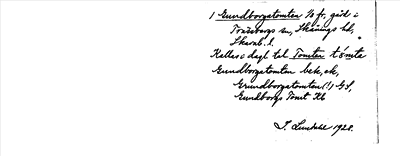 1 Gundborgatomten ½ fr, gård i
Trässbergs sn, Skånings hd,
Skarab. l.
Kallas i dagl. tal Tomten tómta
Gundborgatomten bek, ek,
Grundborgatomten (!) GS,
Gundborgs Tomt Kb
I. Lundahl 1928.